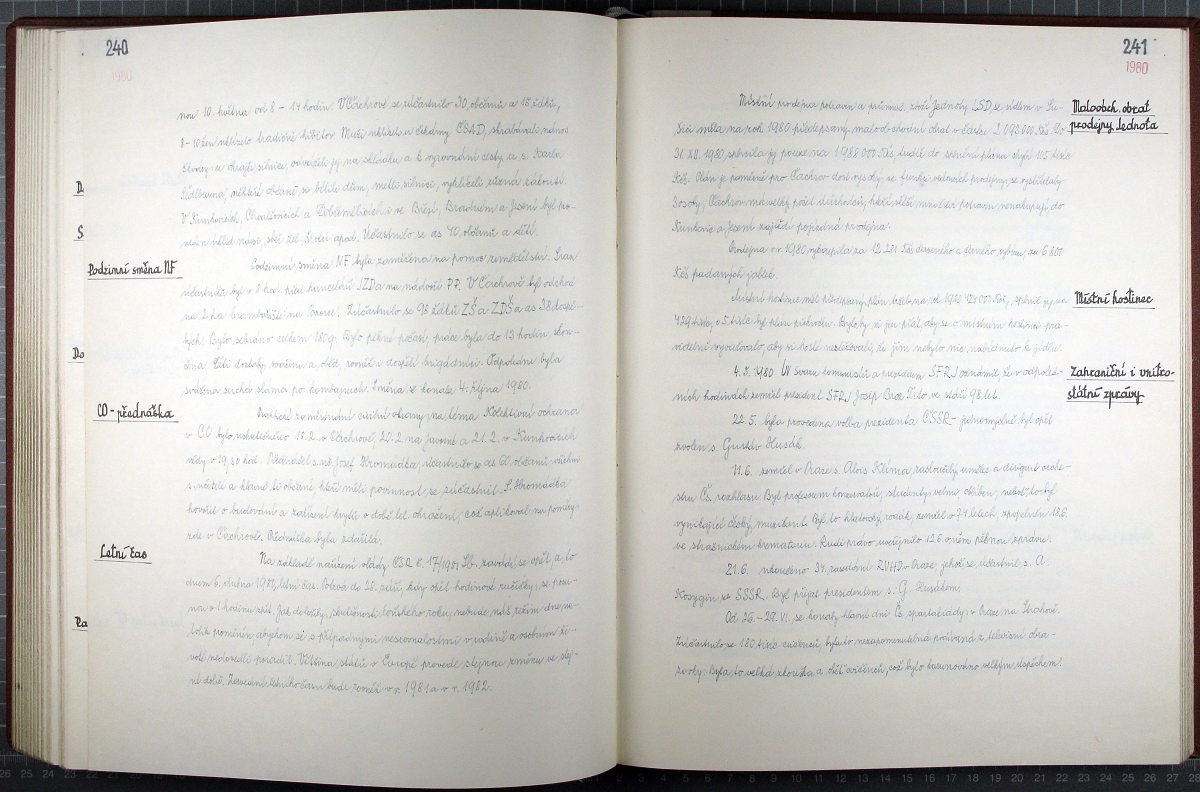 240
1980
nou 10. května od 8 - 14 hodin. V Čachrově se zúčastnilo 30 občanů a 18 žáků,
8-10 žen uklízelo hřbitov. Muži u čekárny ČSAD, nános
škváry u okrajů silnice, odváželi jej na skládku a k vyrovnání cesty u s. Karla
někteří občané se bílili dům, metli silnici, vyklízeli různá zákoutí.
V Kunkovicích, Chvalšovicích a Dobřemilicích i ve Březí, Bradném a Jesení byl pro-
veden úklid návsí, sběr žel. šrotu apod. Účastnilo se as 40 občanů a dětí.
Podzimní směna NF
Podzimní směna NF byla zaměřena na pomoc zemědělství. Sraz
účastníků byl v 8 hod. před kanceláří JZD a na nádvoří PP. V Čachrově byl odchod
na 2 ha bramboriště na Zúčastnilo se 98 žáků ZŠ a ZDŠ a as 30 dospě-
lých. Bylo sebráno celkem 180 q. Bylo pěkné počasí, práce byla do 13 hodin, skon-
čena. Děti dostaly svačinu a oběd, rovněž i dospělí brigádníci. Odpoledne byla
svážena suchá sláma po kombajnech. Směna se konala 4. října 1980.
CO - přednáška
civilní obrany na téma Kolektivní ochrana
v CO bylo uskutečněno 18.2. v Čachrově, 20.2. na Javorné a 21.2. v Kunkovicích
vždy v 19,30 hod. Přednášel s. Josef Hromádka, účastnilo se as 60 občanů, všichni
s. učitelé a hlavně ti občané, kteří měli povinnost se zúčastnit. S. Hromádka
hovořil o budování a zařízení krytů v době let. ohrožení, což aplikoval na poměry
zde v Čachrově. Přednáška byla zdařilá.
Letní čas
Na základě nařízení vlády ČSR č. 17/1981 Sb. zavádí se opět, a to
dnem 6. dubna 1980, letní čas. Potrvá do 28. září, kdy opět hodinové ručičky se posu-
nou o 1 hodinu zpět. Jak doložily zkušenosti loňského roku, nebude náš režim dne na-
tolik proměněn abychom si s případnými nesrovnalostmi v rodině a osobním ži-
votě nedovedli poradit. Většina států v Evropě provede stejnou změnu ve stej-
né době. Zavedení letního času bude rovněž v r. 1981 a v r. 1982.
D.
S.
Do
Pa
241
1980
Maloobch. obrat
prodejny Jednota
Místní prodejna potravin a průmysl. zboží Jednoty LSD, se sídlem v Su-
šici měla na rok 1980 předepsaný maloobchodní obrat v částce 2,093.000 Kčs. Do
31.XII. 1980, splnila jej pouze na 1,988.000 Kčs, tudíž do splnění plánu chybí 105 tisíc
Kčs. Plán je poměrně pro Čachrov dost vysoký, ve funkci vedoucích prodejny, se vystřídaly
3 osoby, Čachrov má velký počet důchodců, kteří větší množství potravin nenakupují do
Kunkovic a Jesení zajíždí pojízdná prodejna.
Prodejna v r. 1980 vykoupila za 12.281 Kčs a za 6800
Kčs padaných jablek.
Místní hostinec
Místní hostinec měl předepsaný plán tržeb na rok 1980 424.000 Kčs, splnil jej na
429 tisíc, o 5 tisíc byl plán překročen. Bylo by si jen přát, aby se o místním hostinci pra-
videlně vyvařovalo, aby si hosté nestěžovali, že jim nebylo nic nabídnuto k jídlu.
Zahraniční i vnitro-
státní zprávy
4.5. 1980 ÚV Svazu komunistů a presidium SFRJ oznámil, že v odpoled-
ních hodinách zemřel president SFRJ Josip Broz Tito ve stáří 88 let.
22.5. byla provedena volba presidenta ČSSR - jednomyslně byl opět
zvolen s. Gustáv Husák.
11.6. zemřel v Praze s. Alois Klíma zasloužilý umělec a dirigent orche-
stru Čs. rozhlasu. Byl profesorem konzervatoře, studenty velmi oblíben, neboť to byl
vynikající český muzikant. Byl to klatovský rodák, zemřel v 74 letech, zpopelněn 18.6.
ve strašnickém krematoriu. Rudé právo uveřejnilo 12.6. o něm pěknou zprávu.
21.6. ukončeno 34. zasedání RVHP v Praze, jehož se účastnil s. A.
Kosygin ze SSSR. Byl přijat presidentem s. G. Husákem.
Od 26. - 29. VI. se konaly hlavní dni Čs. spartakiády v Praze na Strahově.
Zúčastnilo se 180 tisíc cvičenců, byla to nezapomenutelná podívaná z televizní obra-
zovky. Byla to velká zkouška a oběť cvičenců, což bylo korunováno velkým úspěchem.